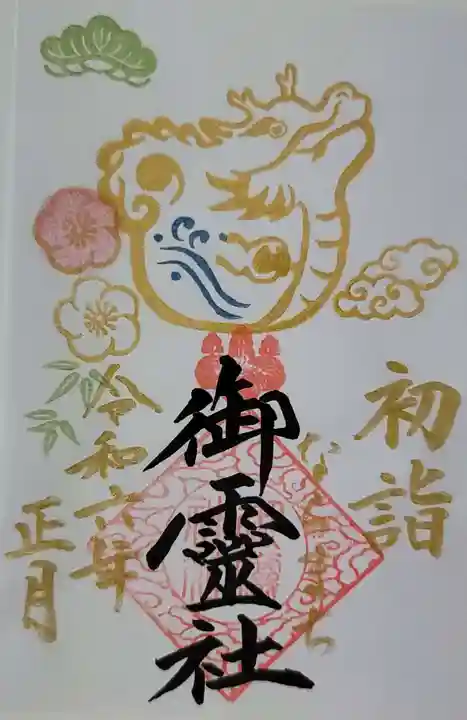 初詣
ならまち
御靈社
令和六年
正月